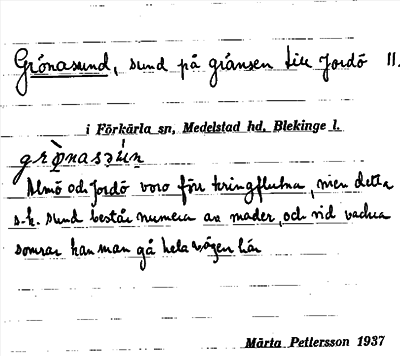 Grönasund, sund på gränsen till Jordö 11.
i Förkärla sn, Medelstad hd. Blekinge l.
grö̀nassún
Almö och Jordö voro förr kringflutna, men detta
s.k. sund består numera av mader, och vid vackra
somrar kan man gå hela vägen här
Märta Pettersson 1937